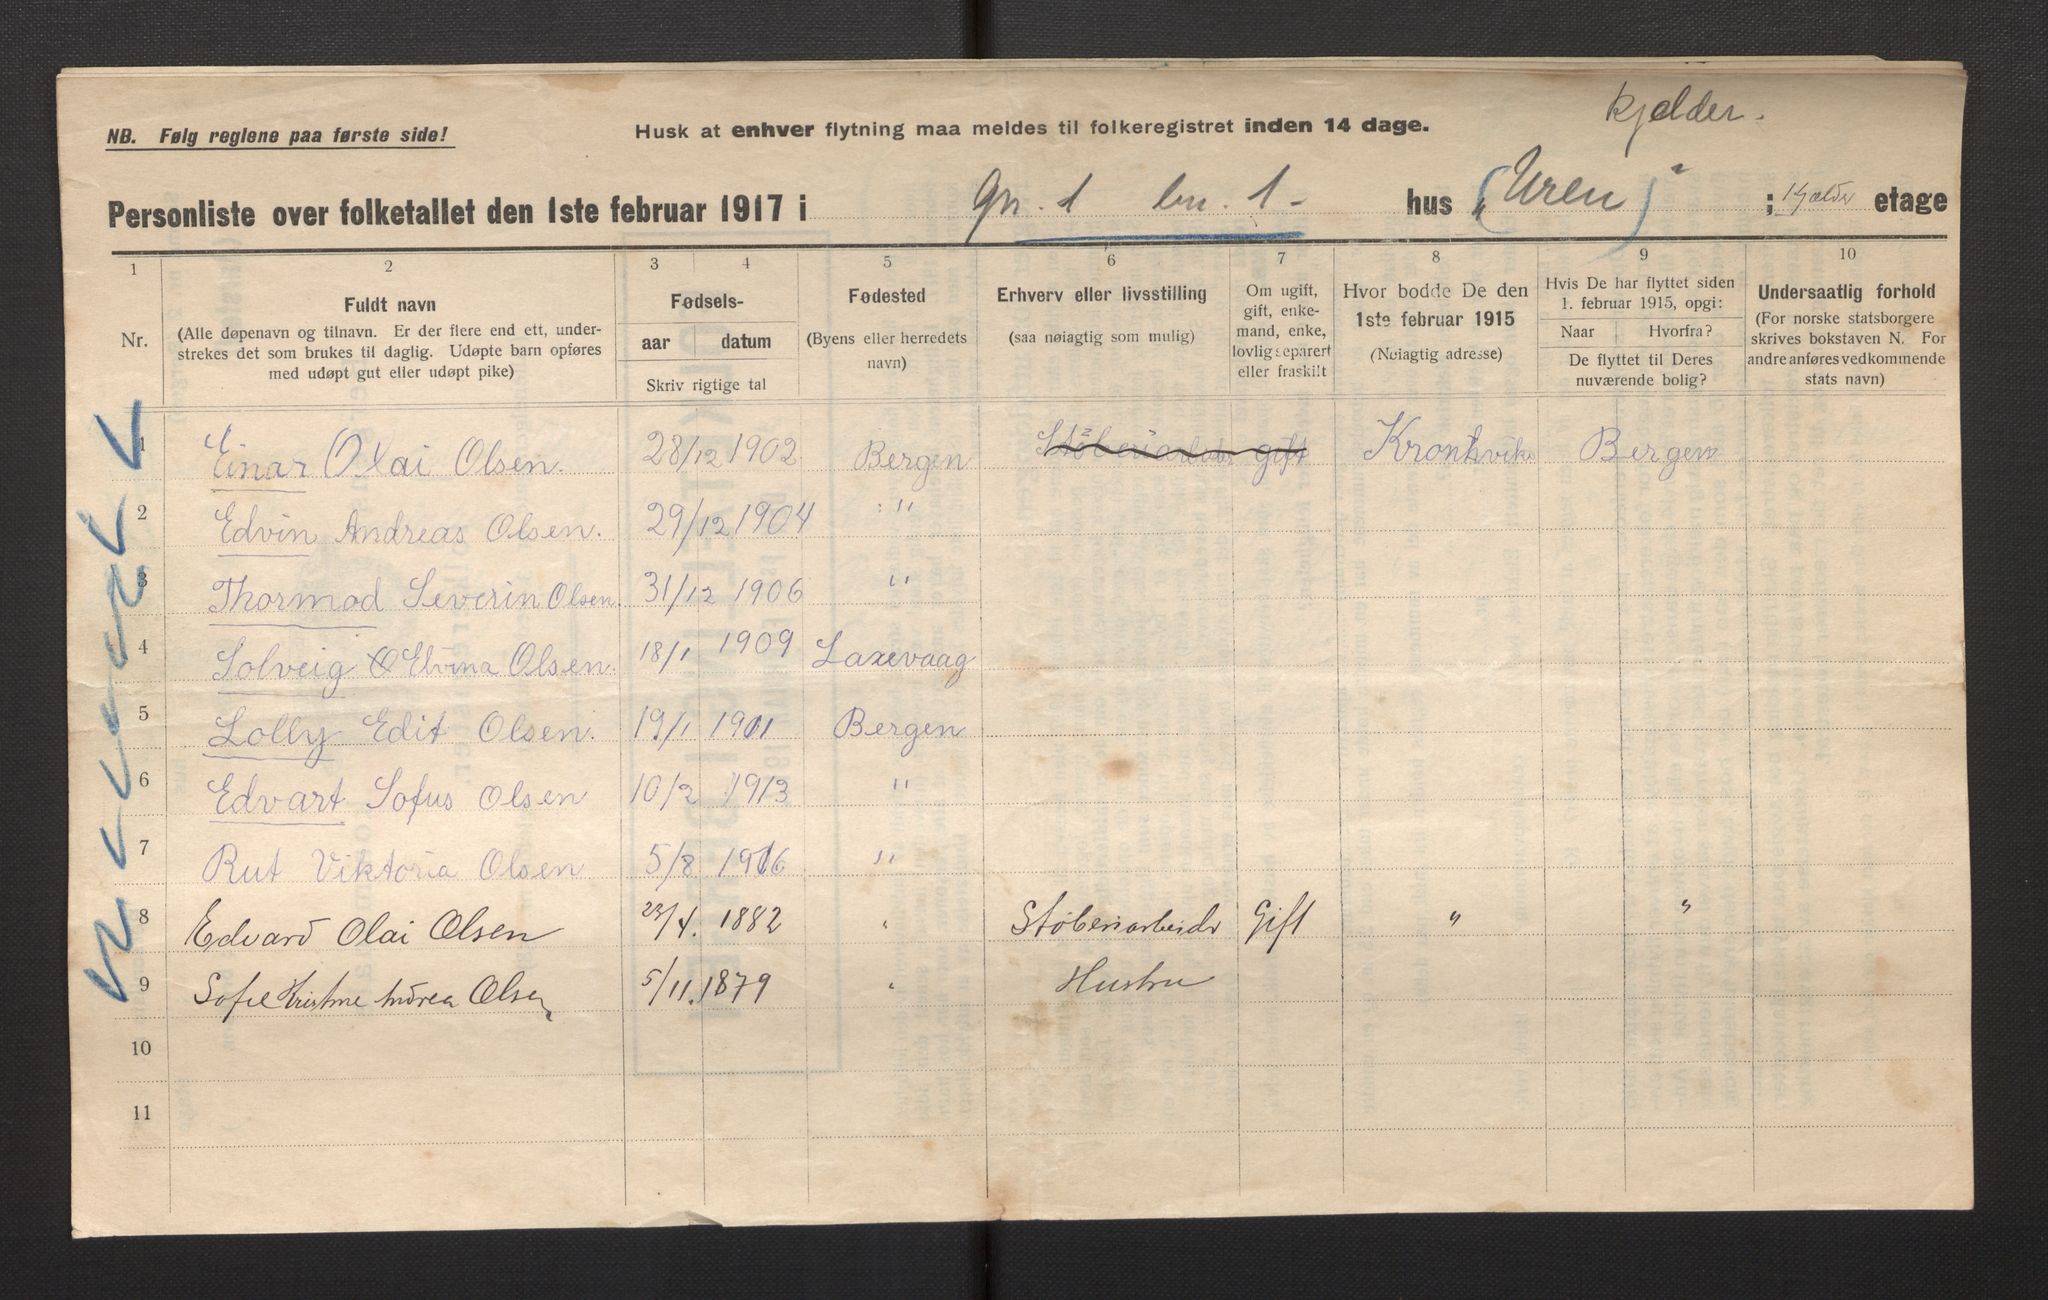 kjelder.
NB. Følg reglene paa første side! Husk at enhver flytning maa meldes til folkeregistret inden 14 dage.
Personliste over folketallet den 1ste februar 1917 i Gn. 1 bn. 1 - hus („Uren") ; Kjælder etage
1 2 3 4 5 6 7 8 9 10
Nr.
Fuldt navn
(Alle døpenavn og tilnavn. Er der flere end ett, under-
strekes det som brukes til daglig. Udøpte barn opføres
med udøpt gut eller udøpt pike)
Fødsels-
aar datum
Skriv rigtige tal
Fødested
(Byens eller herredets
navn)
Erhverv eller livsstilling
(saa nøiagtig som mulig)
Om ugift,
gift, enke-
mand, enke,
lovlig separert
eller fraskilt
Hvor bodde De den
1ste februar 1915
(Nøiagtig adresse)
Hvis De har flyttet siden
1. februar 1915, opgi:
Naar Hvorfra?
De flyttet til Deres
nuværende bolig?
Undersaatlig forhold
(For norske statsborgere
skrives bokstaven N. For
andre anføres vedkommende
stats navn)
1 Einar Olai Olsen. 28/12 1902 Bergen Støberiarbeider gift Bergen
2 Edvin Andreas Olsen. 29/12 1904 "
3 Thormod Severin Olsen. 31/12 1906 "
4 Solveig Elvina Olsen. 18/1 1909 Laxevaag
5 Lolly Edit Olsen. 19/1 1911 Bergen
6 Edvart Sofus Olsen 10/2 1913 "
7 Rut Viktoria Olsen 5/8 1916 "
8 Edvard Olai Olsen 23/4. 1882 " Støberiarbeidr Gift " "
9 Sofie Kristine Andrea Olsen 5/11. 1879 " Hustru
10
11